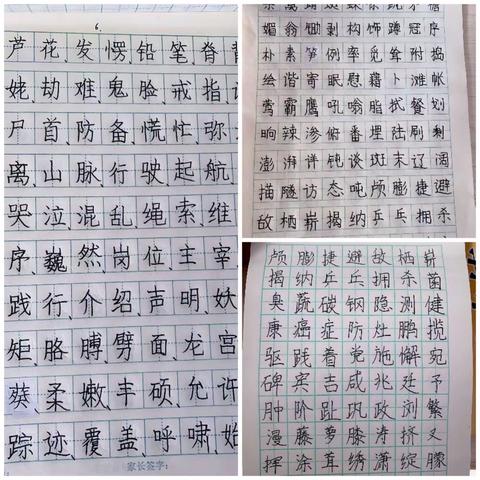 6.
芦花、发愣、铅笔、脊背
姥、劫难、鬼脸、戒指、
尸首、防备、慌忙、弥
离、山脉、行驶、起航
哭泣、混乱、绳索、维
序、巍然、岗位、主宰
践行、介绍、声明、妖
矩、胳膊、劈面、龙宫
柔嫩、丰硕、允许
踪迹、覆盖、呼啸、始
家长签字：
媚翁锄剥构饰蹲冠序
朴素笋例率觅耸附捣
绘谐寄眠慰藉卜滩帐
莺霸鹰吼嗡脂拭餐划
晌辣渗俯番埋陡刷剩
澎湃详钝谈斑末辽阔
描隧访态吨颅膨捷避
敌栖崭揭纳乒乓拥杀
颅膨捷避敌栖崭
揭纳乒乓拥杀菌
臭蔬碳钢隐测健
康癌症防灶鹏揽
驱践着党施懈宛
碑宾吉咸兆廷予
肿阶趾巩政浏繁
漫藤萝膝涛挤又
挥涂茸绣潇绽朦